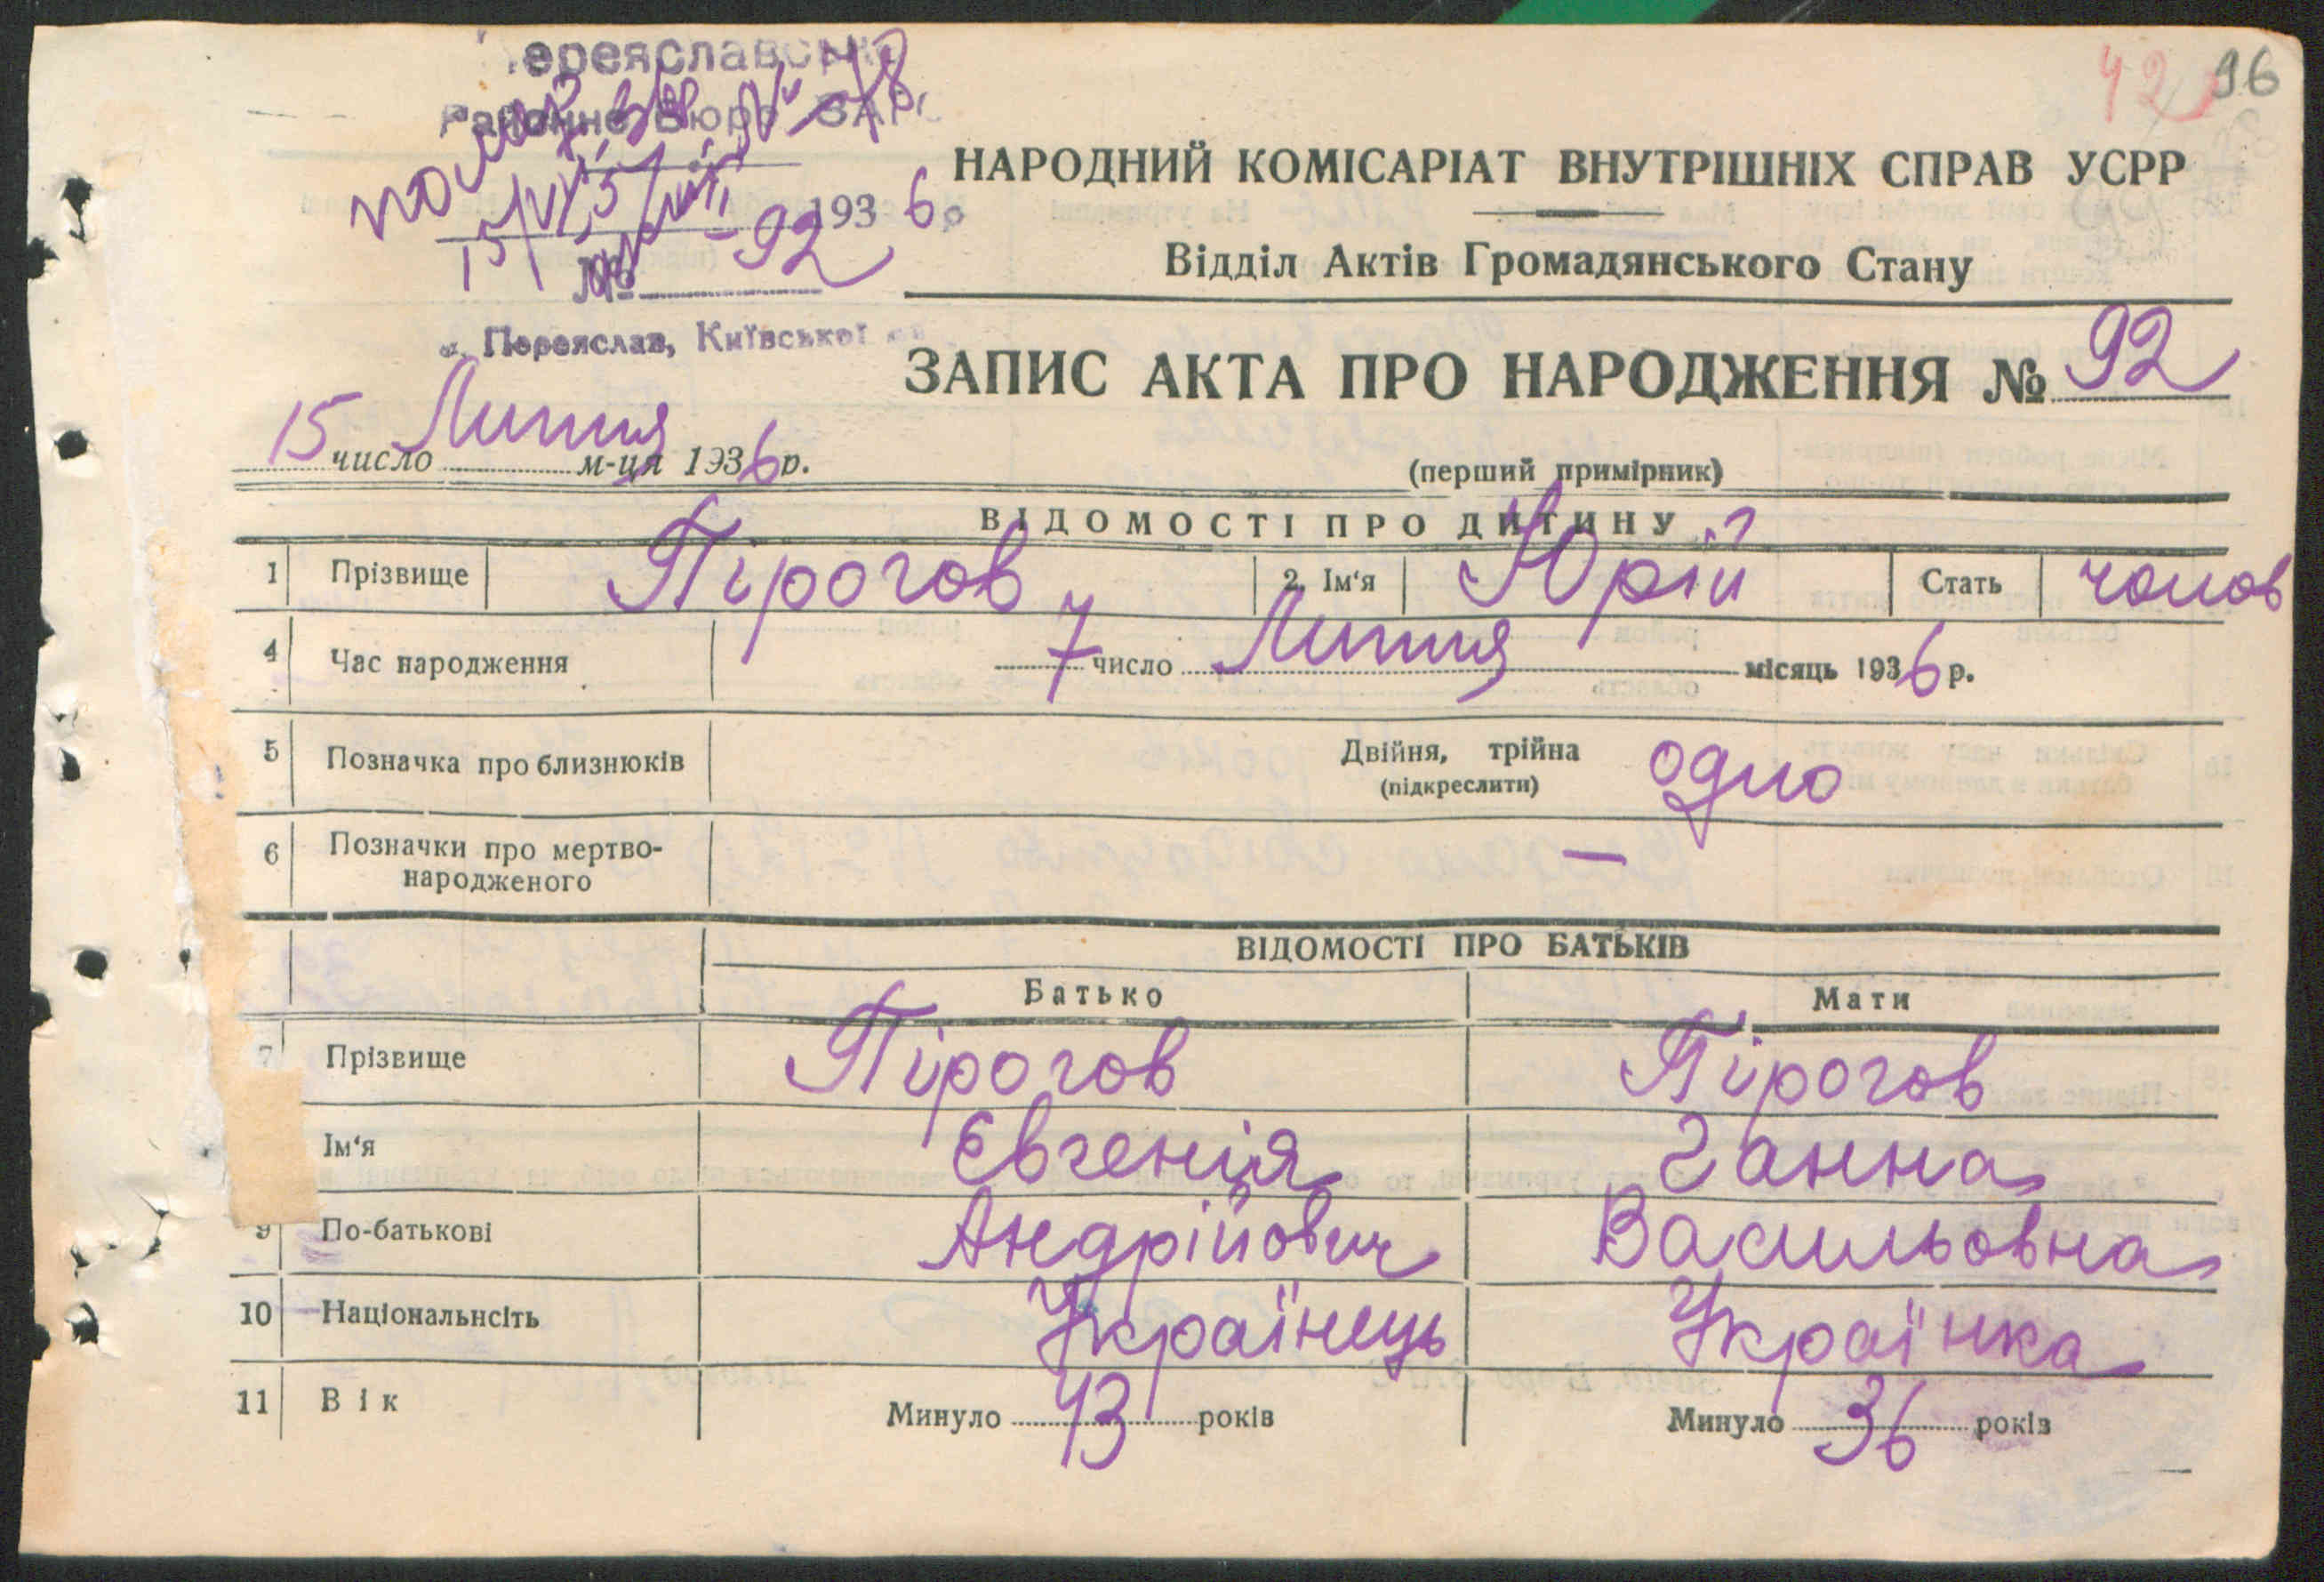 42 96
Переяславське
Районне Бюро ЗАГС
15/VII 1936 р
№ 92
м. Переяслав, Київської
НАРОДНИЙ КОМІСАРІАТ ВНУТРІШНІХ СПРАВ УСРР
Відділ Актів Громадянського Стану
ЗАПИС АКТА ПРО НАРОДЖЕННЯ № 92
15 число Липня м-ця 1936 р.
(перший примірник)
ВІДОМОСТІ ПРО ДИТИНУ
1 Прізвище Пірогов 2. Ім‘я Юрій Стать чолов
4 Час народження 7 число Липня місяць 1936 р.
5 Позначка про близнюків Двійня, трійна одно
(підкреслити)
6 Позначки про мертво-
народженого —
ВІДОМОСТІ ПРО БАТЬКІВ
Батько Мати
7 Прізвище Пірогов Пірогов
Ім‘я Євгенія Ганна
9 По-батькові Андрійович Васильовна
10 Національнсіть Українець Українка
11 Вік Минуло 43 років Минуло 36 років